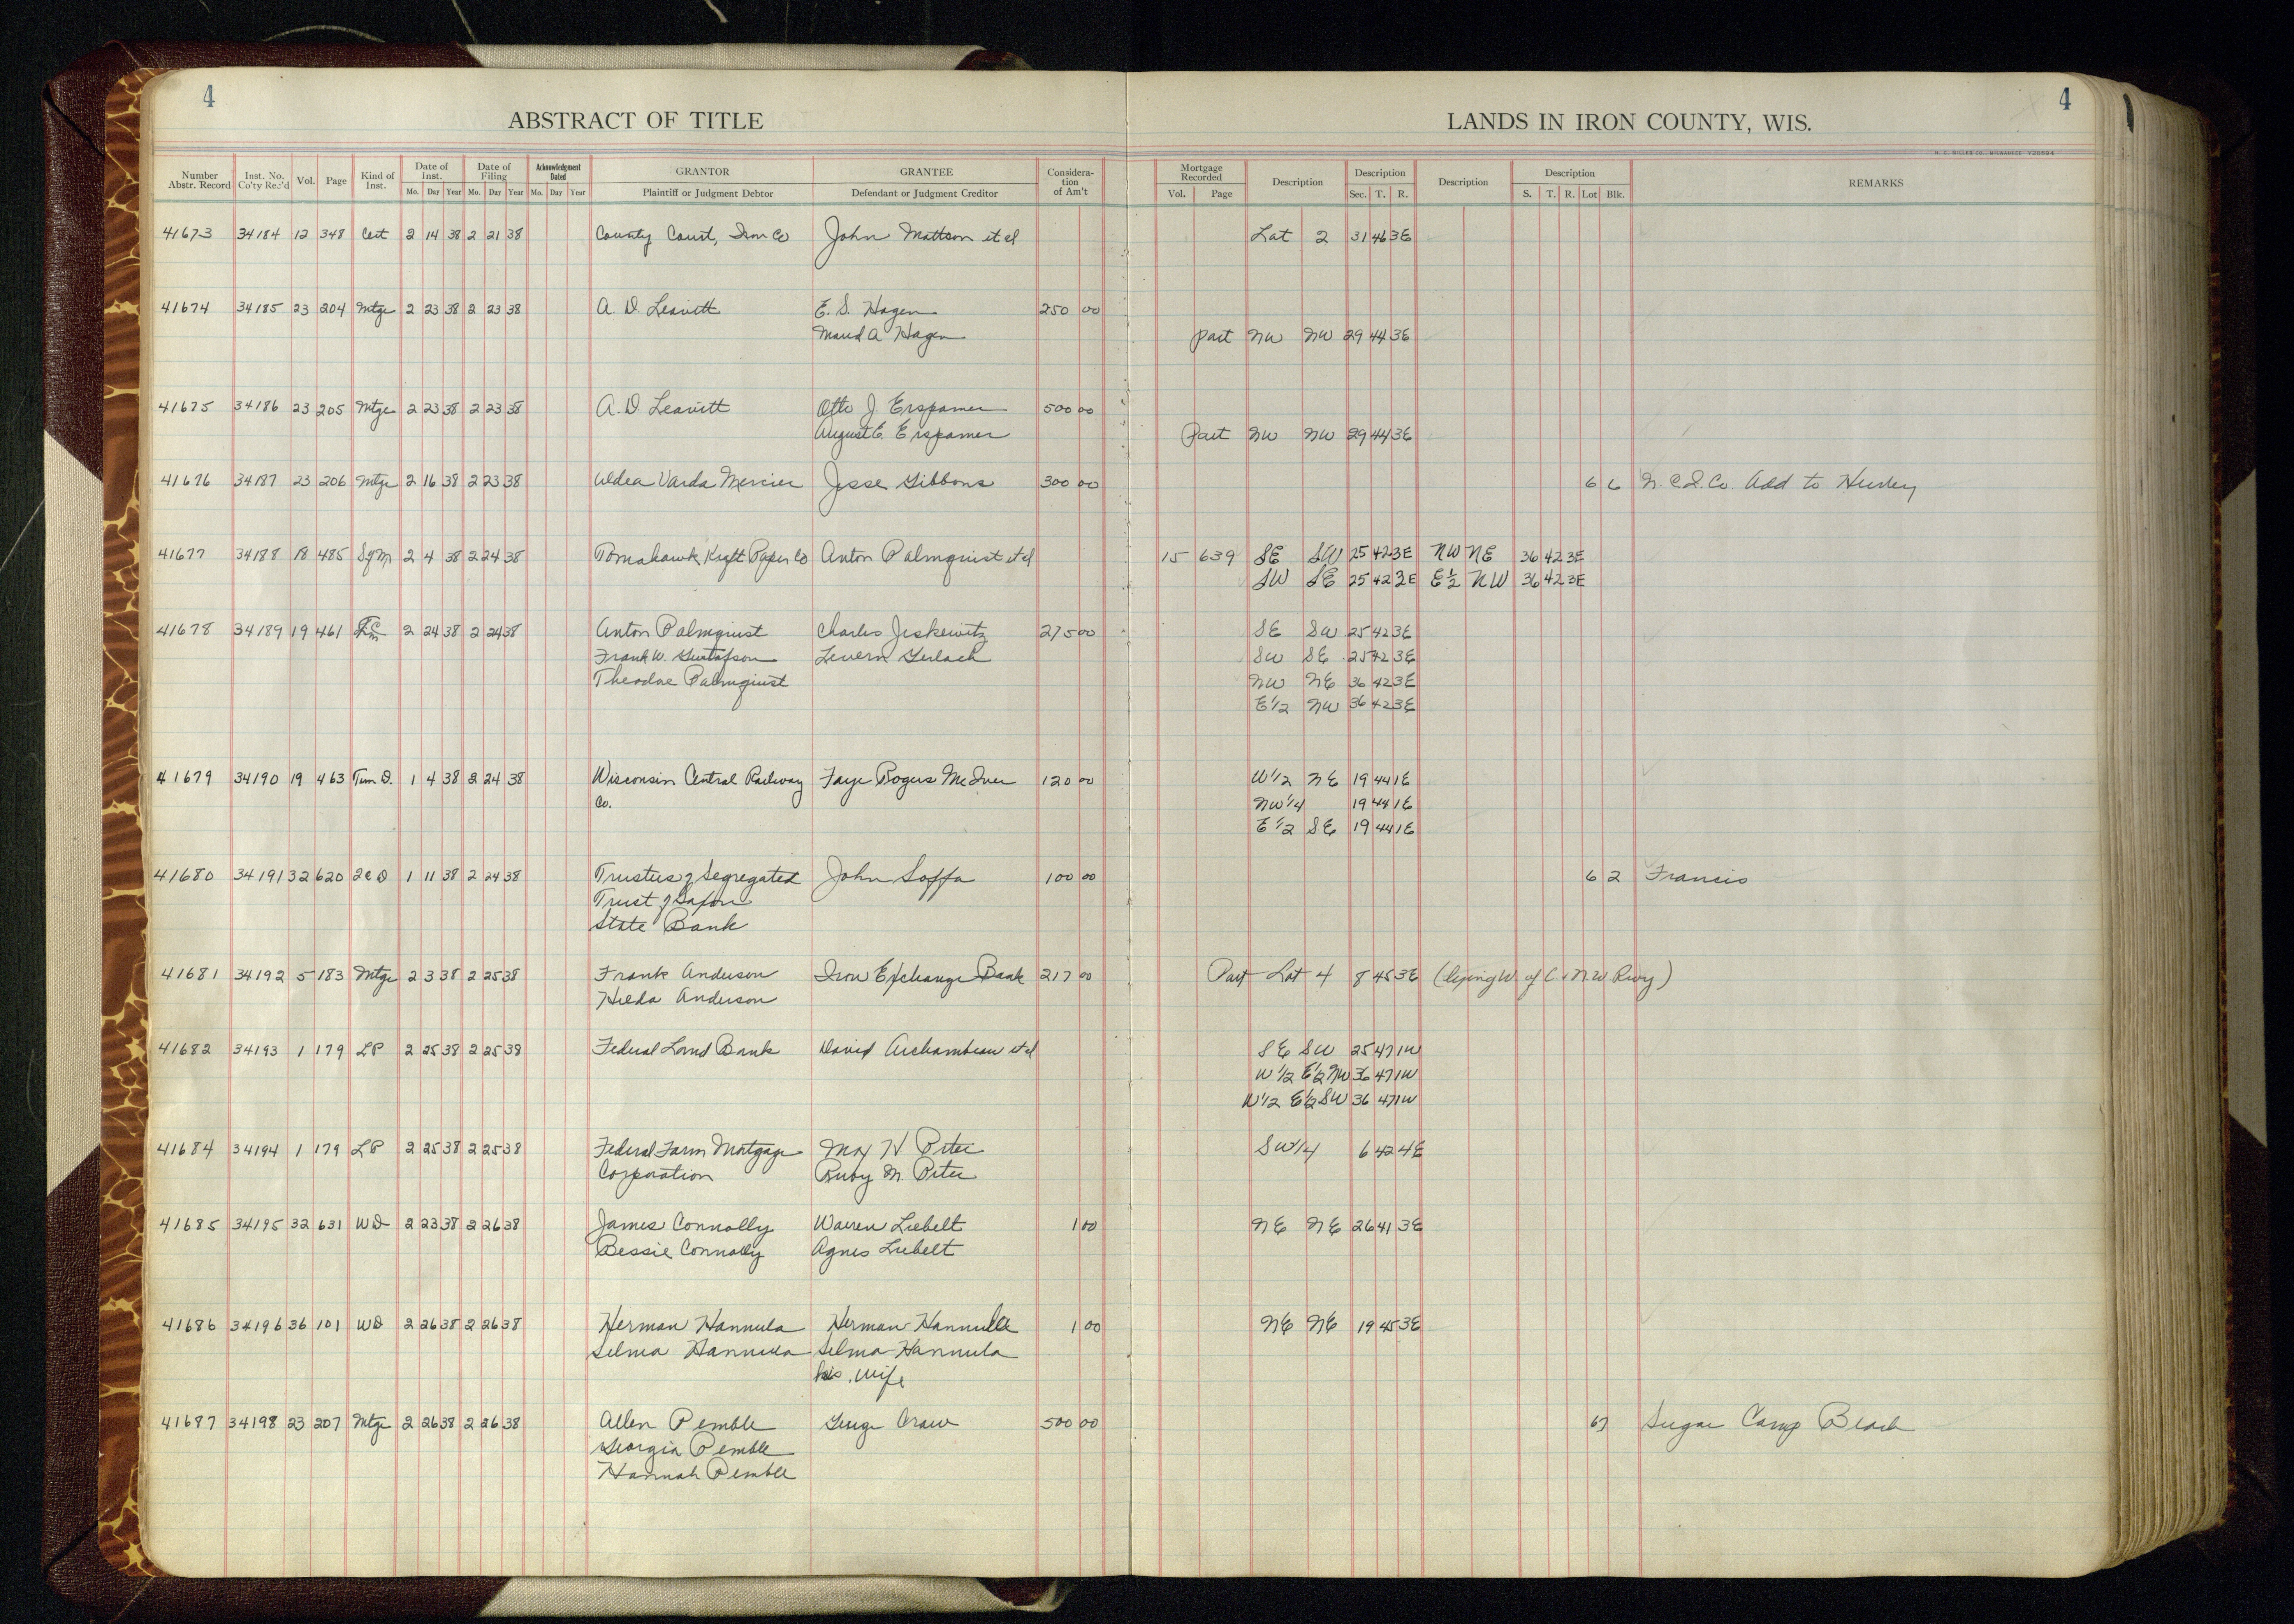 4
4
ABSTRACT OF TITLE
LANDS IN IRON COUNTY, WIS.
Number Abstr. Record Inst. No. Co'ty Rec'd Vol. Page Kind of Inst. Date of Inst. Mo. Day Year Date of Filing Mo. Day Year Acknowledgment Dated Mo. Day Year GRANTOR Plaintiff or Judgment Debtor GRANTEE Defendant or Judgment Creditor Considera-tion of Am't Mortgage Recorded Vol. Page Description Description Sec. T. R. Description Description S. T. R. Lot Blk. REMARKS
41673 34184 12 348 Cert 2 14 38 2 21 38 County Court, Iron Co John Mattson et al Lot 2 31 46 3E
41674 34185 23 204 Mtge 2 23 38 2 23 38 A. D. Leavitt E. S. Hagen 250 00
Maud A Hagen Part NW NW 29 44 3E
41675 34186 23 205 Mtge 2 23 38 2 23 38 A. D. Leavitt Otto J. Erspamer 500 00
August E. Erspamer Part NW NW 29 44 3E
41676 34187 23 206 Mtge 2 16 38 2 23 38 Aldea Varda Mercier Jesse Gibbons 300 00 6 6 N. C. I. Co. Add to Hurley
41677 34188 18 485 SgM 2 4 38 2 24 38 Tomahawk Kraft Paper Co Anton Palmquist et al 15 639 SE SW 25 42 3E NW NE 36 42 3E
SW SE 25 42 3E E½ NW 36 42 3E
41678 34189 19 461 2 24 38 2 24 38 Anton Palmquist Charles Jeskewitz 275 00 SE SW 25 42 3E
Frank W. Gustafson Levern Gerlach SW SE 25 42 3E
Theodore Palmquist NW NE 36 42 3E
E½ NW 36 42 3E
41679 34190 19 463 Tim D. 1 4 38 2 24 38 Wisconsin Central Railway Faye Rogers McIver 120 00 W½ NE 19 44 1E
Co. NW¼ 19 44 1E
E½ SE 19 44 1E
41680 34191 32 620 2C D 1 11 38 2 24 38 Trustees of Segregated John Saffa 100 00 6 2 Francis
Trust of Saxon
State Bank
41681 34192 5 183 Mtge 2 3 38 2 25 38 Frank Anderson Iron Exchange Bank 217 00 Part Lot 4 8 45 3E (lying W. of C & N W Rwy)
Hilda Anderson
41682 34193 1 179 LP 2 25 38 2 25 38 Federal Land Bank David Archambeau et al SE SW 25 47 1W
W½ E½ NW 36 47 1W
W½ E½ SW 36 47 1W
41684 34194 1 179 LP 2 25 38 2 25 38 Federal Farm Mortgage May H. Peter SW¼ 6 42 4E
Corporation Ruby M. Peter
41685 34195 32 631 WD 2 23 38 2 26 38 James Connolly Warren Liebelt 1 00 NE NE 26 41 3E
Bessie Connolly Agnes Liebelt
41686 34196 36 101 WD 2 26 38 2 26 38 Herman Hannula Herman Hannula 1 00 NE NE 19 45 3E
Selma Hannula Selma Hannula
his wife
41687 34198 23 207 Mtge 2 26 38 2 26 38 Allen Pemble George Craw 500 00 67 Sugar Camp Beach
Georgia Pemble
Hannah Pemble